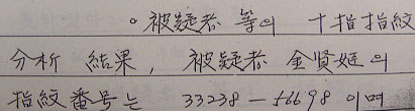 。被疑者 等의 十指指紋
分析 結果, 被疑者 金賢姬의
指紋番号는 33238-56698 이며